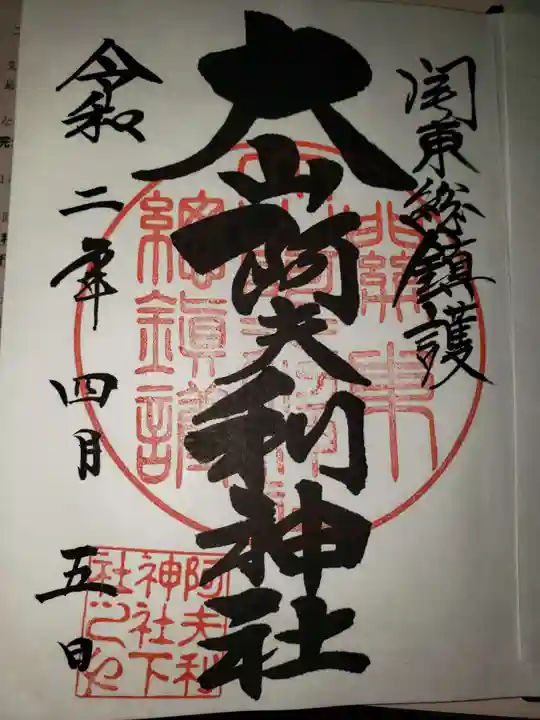 関東総鎮護
大山阿夫利神社
令和二年四月五日
関東
總鎮護
阿夫利
神社下
社之印